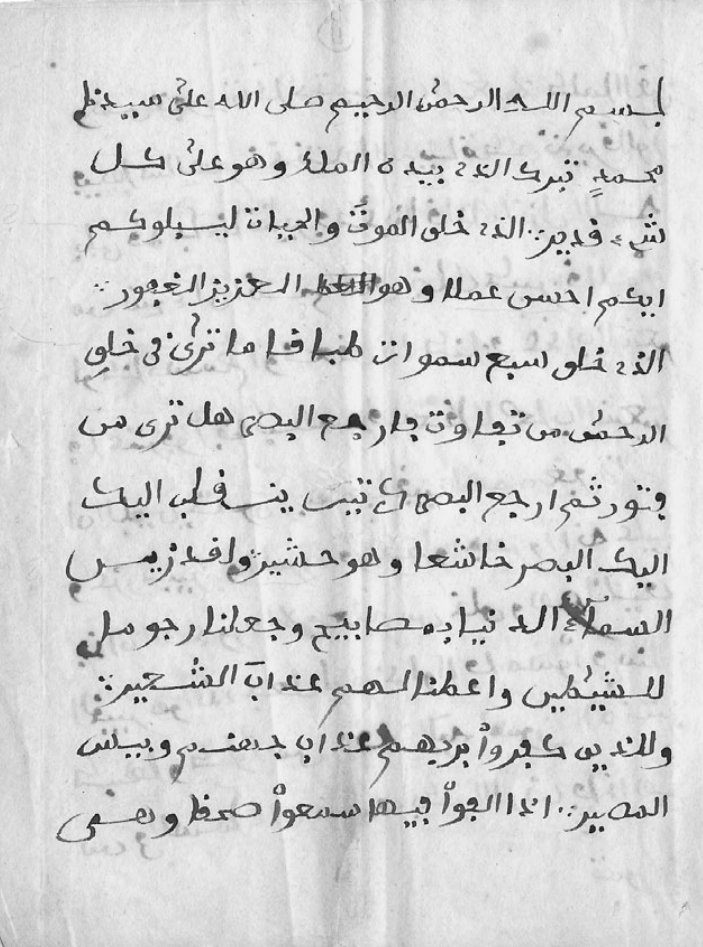 بسم الله الرحمن الرحيم صلى الله على سيدنا
محمد تبرك الذي بيده الملك وهو على كل
شيء قدير الذي خلق الموت والحيات ليبلوكم
ايكم احسن عملا وهو العزيز الغفور
الذي خلق سبع سموات طباقا ما ترى في خلق
الرحمن من تفاوت فارجع البصر هل ترى من
فتور ثم ارجع البصر كرتين ينقلب اليك
اليك البصر خاشعا وهو حسير ولقد زين
السماء الدنيا بمصابيح وجعلنا رجوما
للشيطين واعطنا لهم عذاب السعير
وللذين كفروا بربهم عذاب جهنم وبيس
المصير اذا الفوا فيها سمعوا صحفا وهي